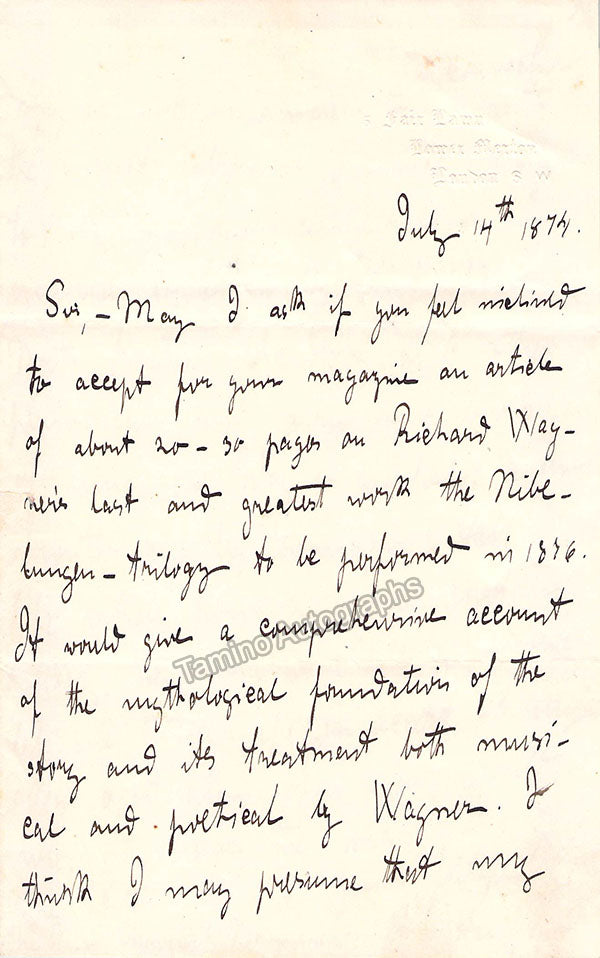 5 Fair Lawn
Lower Merton
London S W
July 14th 1874.
Sir, – May I ask if you feel inclined
to accept for your magazine an article
of about 20 – 30 pages on Richard Wag-
ner's last and greatest work the Nibe-
lungen – trilogy to be performed in 1876.
It would give a comprehensive account
of the mythological foundation of the
story and its treatment both musi-
cal and poetical by Wagner. I
think I may presume that my
Tamino Autographs